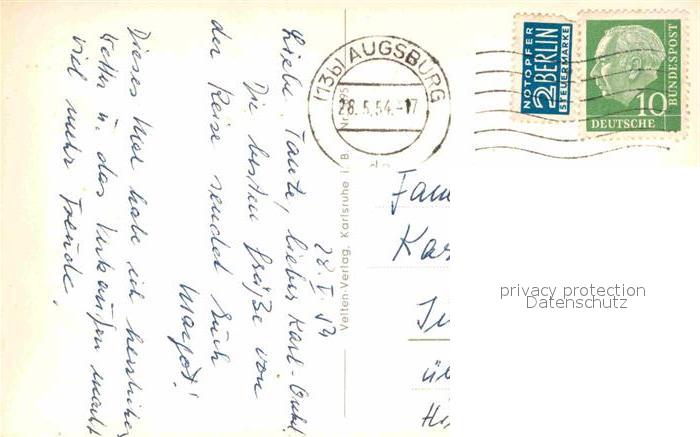 28. V. 54
Liebe Tante, lieber Karl-Onkel,
Die besten Grüße von
der Reise sendet Euch
Margot!
Dieses Mal habe ich herrliches
Wetter u. das Verkaufen macht
viel mehr Freude.
(13b) AUGSBURG
28.5.54.-17
NOTOPFER
2 BERLIN
STEUERMARKE
10
DEUTSCHE
BUNDESPOST
Velten-Verlag, Karlsruhe i. B.
Fam
Kar
privacy protection
Datenschutz